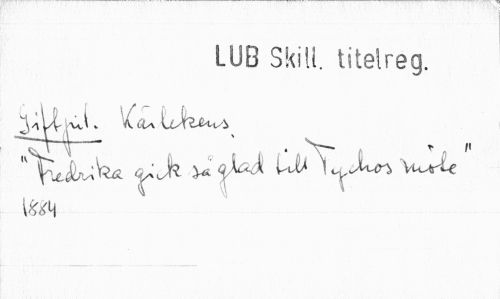 LUB Skill. titelreg.
Giftpil. Kärlekens.
"Fredrika gick så glad till Tychos möte"
1884